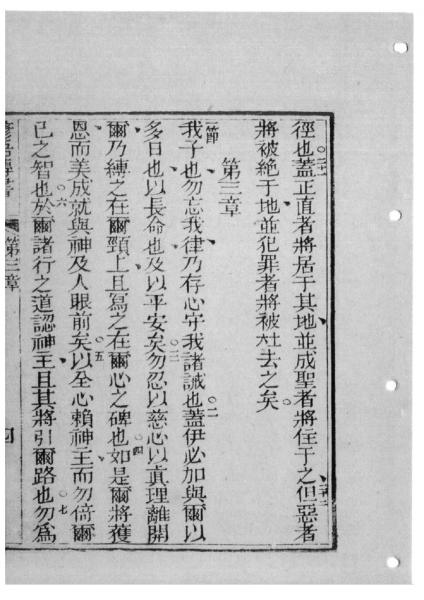 徑也蓋正直者將居于其地並成聖者將住于之但惡者
將被絕于地並犯罪者將被杜去之矣
第三章
一節我子也勿忘我律乃存心守我諸誡也二蓋伊必加與爾以
多日也以長命也及以平安矣三勿忍以慈心以眞理離開
爾乃縳之在爾頸上且寫之在爾心之碑也四如是爾將獲
恩而美成就與神及人眼前矣五以全心賴神主而勿倚爾
已之智也六於爾諸行之道認神主且其將引爾路也七勿爲
第三章